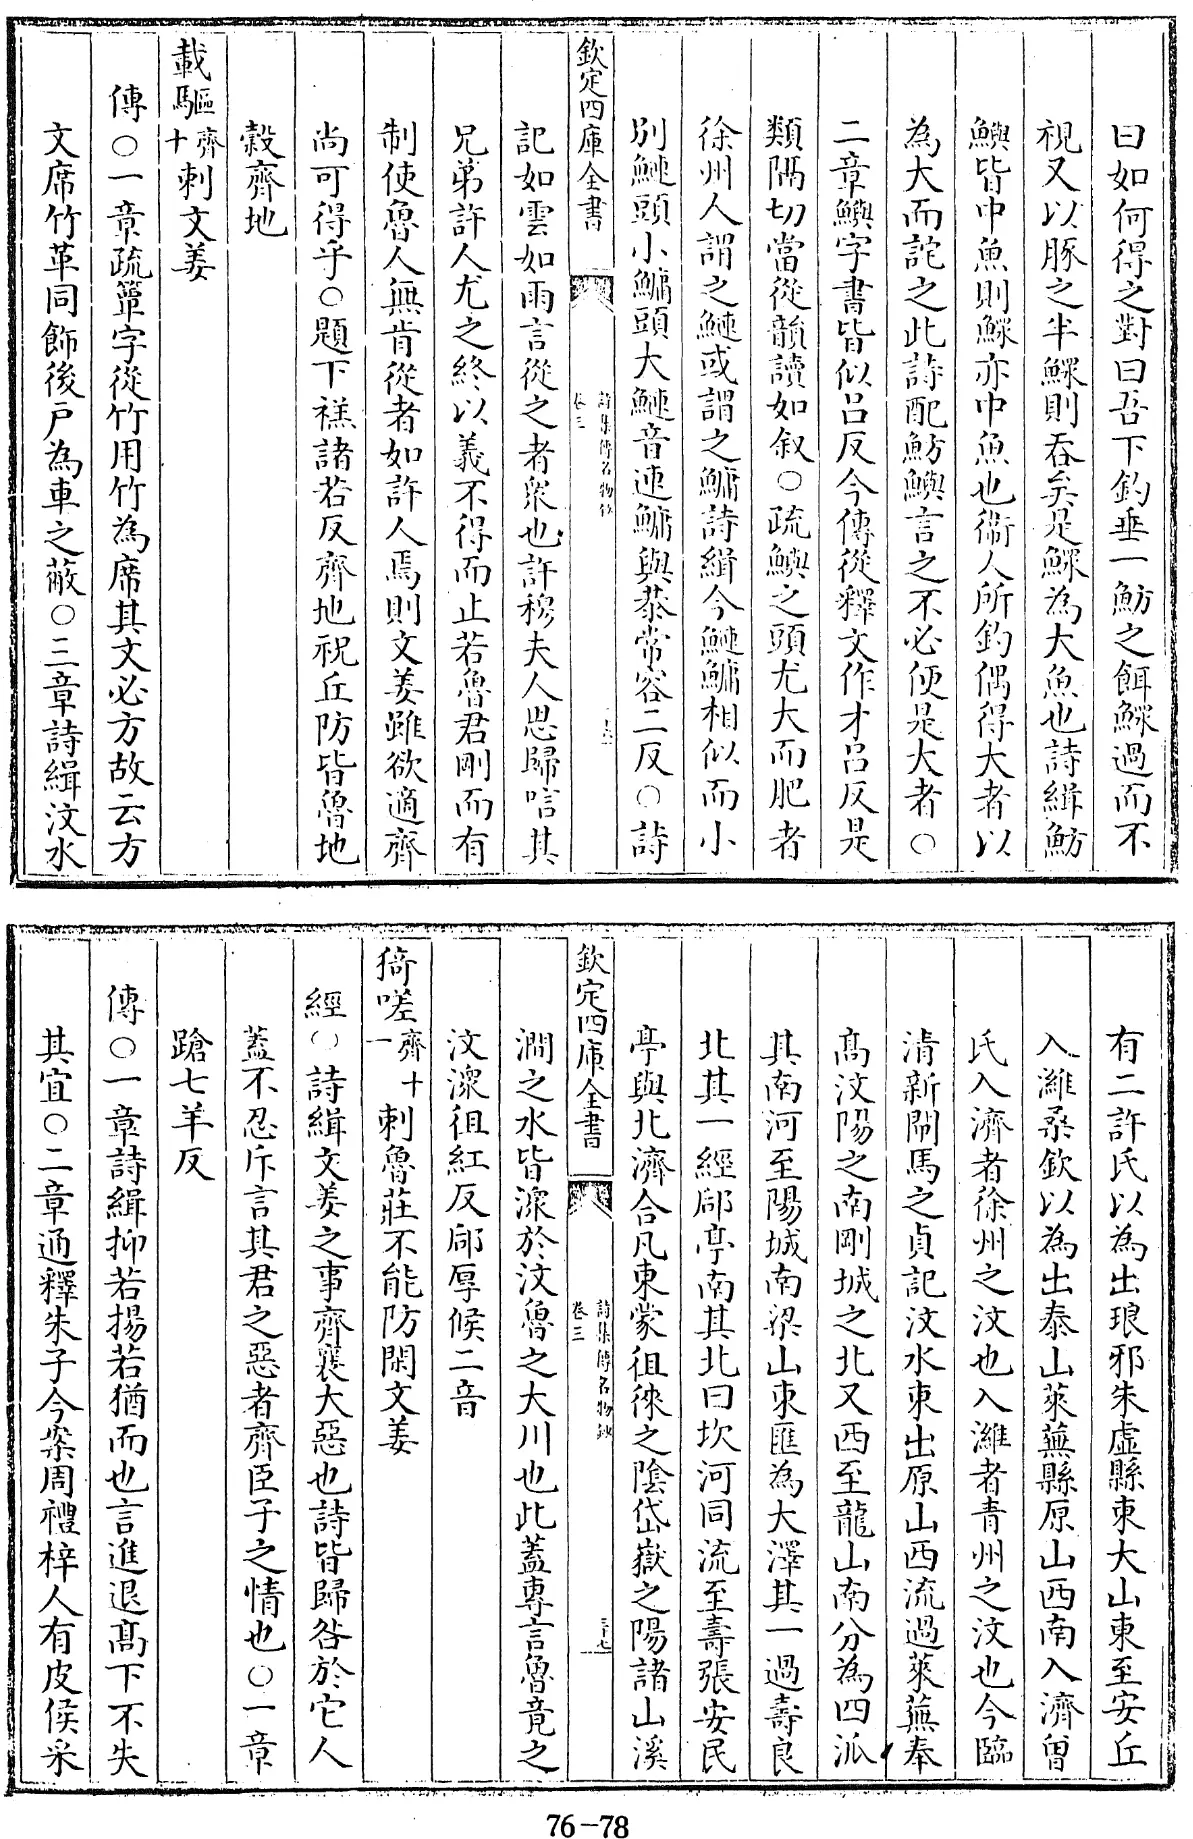 曰如何得之對曰吾下釣垂一魴之餌鰥過而不
視又以豚之半鰥則吞矣是鰥為大魚也詩緝魴
鱮皆中魚則鰥亦中魚也衞人所釣偶得大者以
為大而詫之此詩配魴鱮言之不必便是大者○
二章鱮字書皆似吕反今傳從釋文作才吕反是
類隔切當從韻讀如叙○疏鱮之頭尤大而肥者
徐州人謂之鰱或謂之鱅詩緝今鰱鱅相似而小
别鰱頭小鱅頭大鰱音連鱅與恭常容二反○詩
欽定四庫全書
詩集傳名物鈔
卷三
記如雲如雨言從之者衆也許穆夫人思歸唁其
兄弟許人尤之終以義不得而止若魯君剛而有
制使魯人無肯從者如許人焉則文姜雖欲適齊
尚可得乎○題下禚諸若反齊地祝丘防皆魯地
穀齊地
載驅齊十刺文姜
傳○一章疏簟字從竹用竹為席其文必方故云方
文席竹革同飾後户為車之蔽○三章詩緝汶水
有二許氏以為出琅邪朱虛縣東大山東至安丘
入濰桑欽以為出泰山萊蕪縣原山西南入濟曾
氏入濟者徐州之汶也入濰者青州之汶也今臨
清新閘馬之貞記汶水東出原山西流過萊蕪奉
髙汶陽之南剛城之北又西至龍山南分為四派
其南河至陽城南梁山東匯為大澤其一過壽良
北其一經郈亭南其北曰坎河同流至壽張安民
亭與北濟合凡東蒙徂徠之陰岱嶽之陽諸山溪
欽定四庫全書
詩集傳名物鈔
卷三
三十七
澗之水皆潨於汶魯之大川也此蓋專言魯竟之
汶潨徂紅反郈厚候二音
猗嗟齊十一刺魯莊不能防閑文姜
經○詩緝文姜之事齊襄大惡也詩皆歸咎於它人
蓋不忍斥言其君之惡者齊臣子之情也○一章
蹌七羊反
傳○一章詩緝抑若揚若猶而也言進退髙下不失
其宜○二章通釋朱子今案周禮梓人有皮侯采
76-78